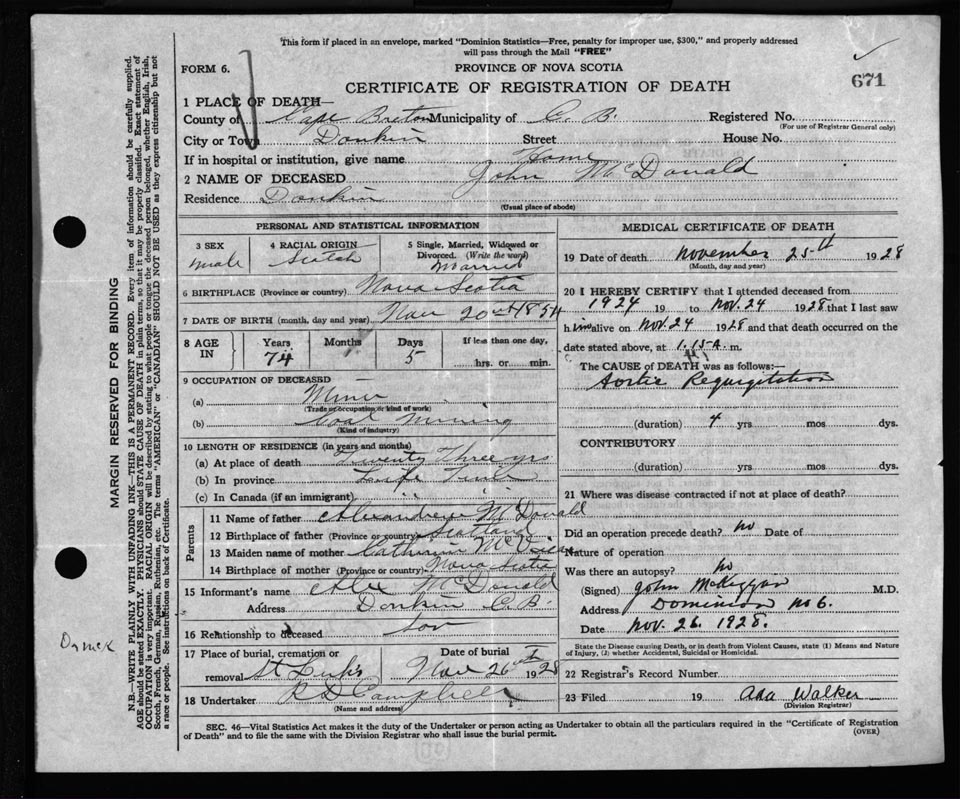 This form if placed in an envelope, marked "Dominion Statistics—Free, penalty for improper use, $300," and properly addressed
will pass through the Mail "FREE"
FORM 6.
PROVINCE OF NOVA SCOTIA
671
CERTIFICATE OF REGISTRATION OF DEATH
1 PLACE OF DEATH—
County of Cape Breton Municipality of C. B. Registered No.
(For use of Registrar General only)
City or Town Donkin Street House No.
If in hospital or institution, give name Home
2 NAME OF DECEASED John McDonald
Residence Donkin
(Usual place of abode)
PERSONAL AND STATISTICAL INFORMATION
3 SEX male
4 RACIAL ORIGIN Scotch
5 Single, Married, Widowed or Divorced. (Write the word) Married
6 BIRTHPLACE (Province or country) Nova Scotia
7 DATE OF BIRTH (month, day and year) Nov 20th 1854
8 AGE IN Years 74 Months Days 5 If less than one day, hrs. or min.
9 OCCUPATION OF DECEASED
(a) Miner
(Trade or occupation or kind of work)
(b) Coal mining
(Kind of industry)
10 LENGTH OF RESIDENCE (in years and months)
(a) At place of death Twenty Three yrs
(b) In province Life Time
(c) In Canada (if an immigrant) " "
Parents
11 Name of father Alexander McDonald
12 Birthplace of father (Province or country) Scotland
13 Maiden name of mother Catherine
14 Birthplace of mother (Province or country) Nova Scotia
15 Informant's name Alex McDonald
Address Donkin C.B.
16 Relationship to deceased son
17 Place of burial, cremation or removal St Lukes Date of burial Nov 26th 1928
18 Undertaker Campbell
(Name and address)
MEDICAL CERTIFICATE OF DEATH
19 Date of death November 25th 1928
(Month, day and year)
20 I HEREBY CERTIFY that I attended deceased from
1924 19 to Nov. 24 1928 that I last saw
him alive on Nov. 24 1928 and that death occurred on the
date stated above, at 1.15 A. m.
The CAUSE of DEATH was as follows:—
Aortic Regurgitation
(duration) 4 yrs mos dys.
CONTRIBUTORY
(duration) yrs mos dys.
21 Where was disease contracted if not at place of death?
Did an operation precede death? no Date of
Nature of operation
Was there an autopsy? no
(Signed) John McKiggan M.D.
Address Dominion No 6.
Date Nov. 26. 1928.
State the Disease causing Death, or in death from Violent Causes, state (1) Means and Nature
of Injury, (2) whether Accidental, Suicidal or Homicidal.
22 Registrar's Record Number
23 Filed 19 Ada Walker
(Division Registrar)
SEC. 46—Vital Statistics Act makes it the duty of the Undertaker or person acting as Undertaker to obtain all the particulars required in the "Certificate of Registration
of Death" and to file the same with the Division Registrar who shall issue the burial permit.
(OVER)
MARGIN RESERVED FOR BINDING
N.B.—WRITE PLAINLY WITH UNFADING INK—THIS IS A PERMANENT RECORD. Every item of information should be carefully supplied.
AGE should be stated EXACTLY. PHYSICIANS should STATE CAUSE OF DEATH in plain terms, so that it may be properly classified. Exact statement of
OCCUPATION is very important. RACIAL ORIGIN will be described by stating to what people or tongue the deceased person belonged, whether English, Irish,
Scotch, French, German, Russian, Ruthenian, etc. The terms "AMERICAN" or "CANADIAN" SHOULD NOT BE USED as they express citizenship but not
a race or people. See instructions on back of Certificate.